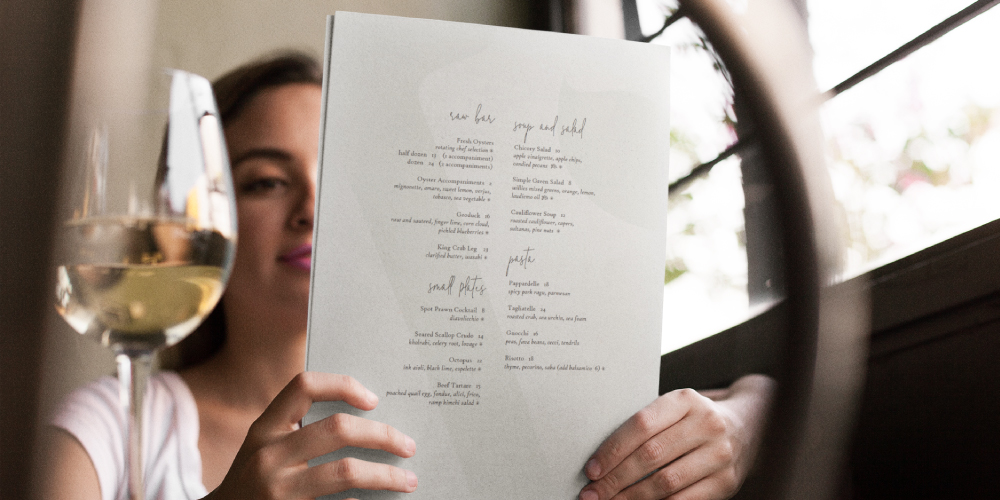 raw bar
Fresh Oysters
rotating chef selection *
half dozen 15 (1 accompaniment)
dozen 24 (2 accompaniments)
Oyster Accompaniments 2
mignonette, amaro, sweet lemon, cerjus,
tobacco, sea vegetable *
Geoduck 16
raw and sauteed, finger lime, corn cloud,
pickled blueberries *
King Crab Leg
clarified butter, wasabi *
small plates
Spot Prawn Cocktail 8
dianelischie *
Seared Scallop Crudo 14
kholrabi, celery root, lovage *
Octopus 11
ink aioli, black lime, espelette *
Beef Tartare 15
poached quail egg, fondue, alici, frico,
ramp kimchi salad *
soup and salad
Chicory Salad 10
apple vinaigrette, apple chips,
candied pecans *
Simple Green Salad 8
willies mixed greens, orange, lemon,
laudemio oil *
Cauliflower Soup 12
roasted cauliflower, capers,
sultanas, pine nuts *
pasta
Pappardelle 18
spicy pork ragu, parmesan
Tagliatelle 24
roasted crab, sea urchin, sea foam
Gnocchi 16
peas, fava beans, ceci, tendrils
Risotto 18
thyme, pecorino, cuba (add balsamico 6) *